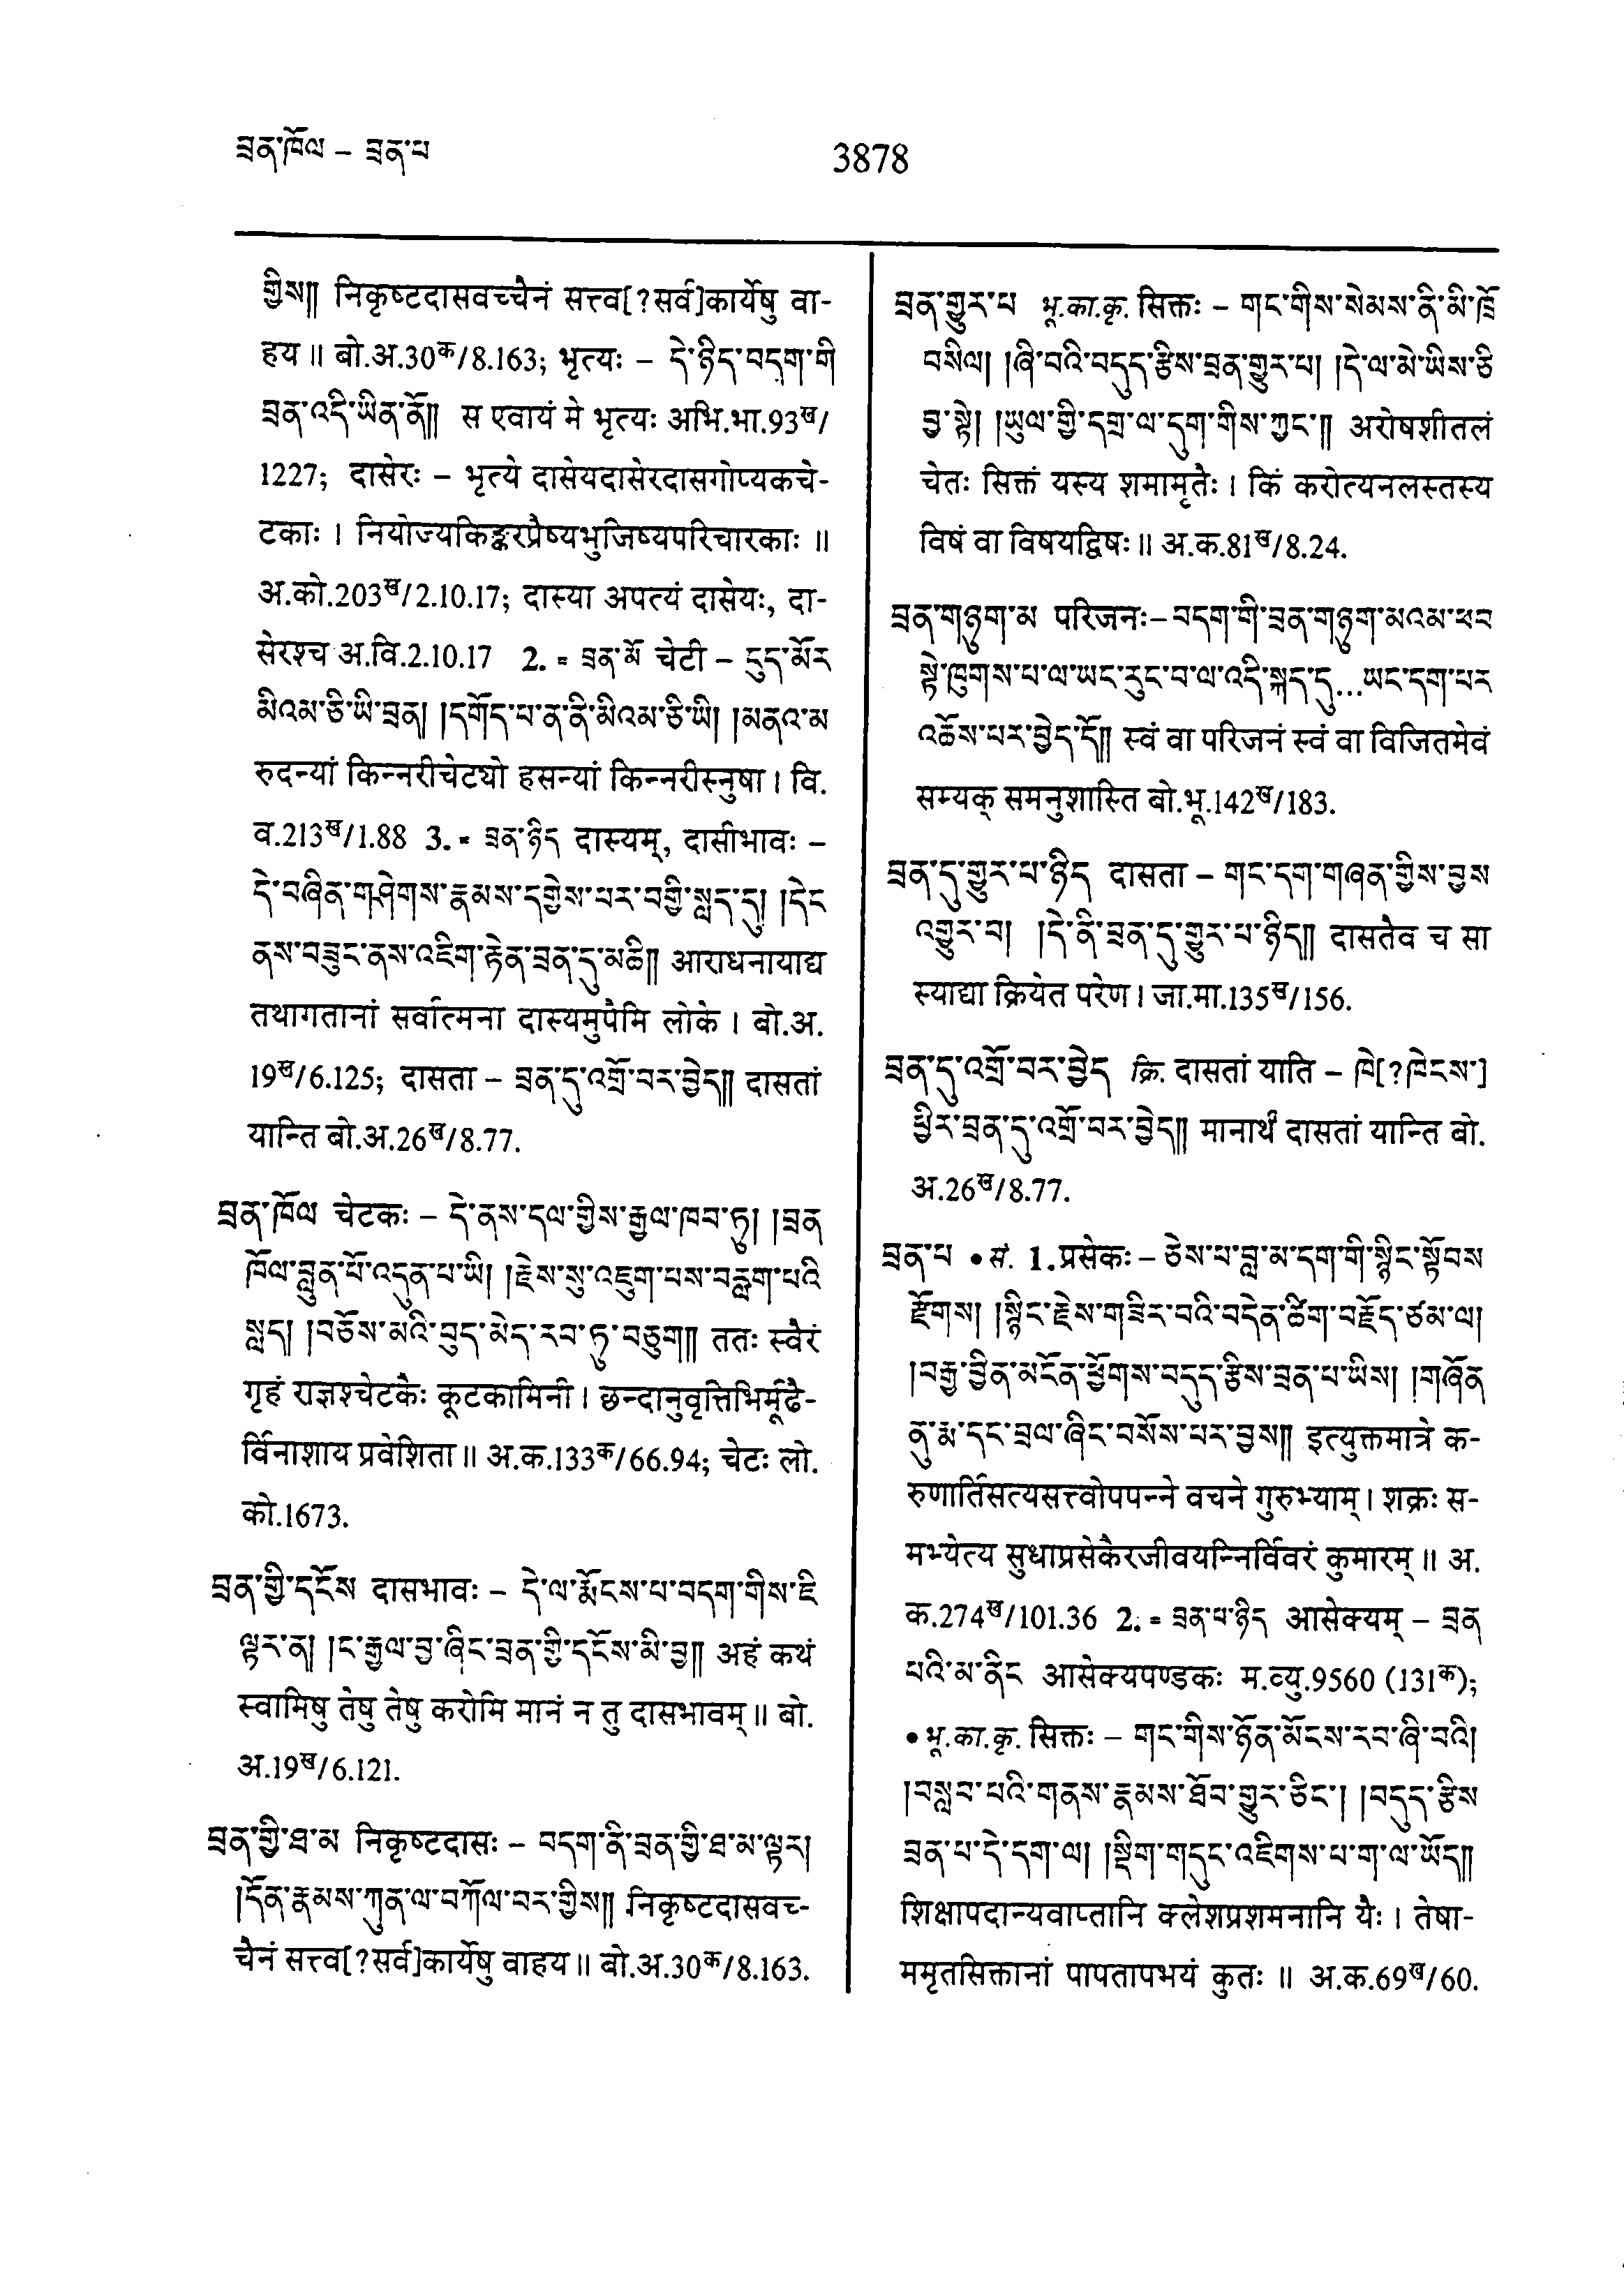 བྲན་ཁོལ – བྲན་པ
3878
གྱིས།། निकृष्टदासवच्चैनं सत्त्व[?सर्व]कार्येषु वा-
हय॥ बो.अ.30क/8.163; भृत्यः – དེ་ཉིད་བདག་གི
བྲན་འདི་ཡིན་ནོ།། स एवायं मे भृत्यः अभि.भा.93ख/
1227; दासेरः – भृत्ये दासेयदासेरदासगोप्यकचे-
टकाः। नियोज्यकिङ्करप्रैष्यभुजिष्यपरिचारकाः॥
अ.को.203ख/2.10.17; दास्या अपत्यं दासेयः, दा-
सेरश्च अ.वि.2.10.17 2. = བྲན་མོ चेटी – དུད་མོར
མིའམ་ཅི་ཡི་བྲན། །དགོད་པ་ན་ནི་མིའམ་ཅི་ཡི། །མནའ་མ
रुदन्यां किन्नरीचेट्यो हसन्यां किन्नरीस्नुषा। वि.
व.213ख/1.88 3. = བྲན་ཉིད दास्यम्, दासीभावः –
དེ་བཞིན་གཤེགས་རྣམས་དགྱེས་པར་བགྱི་སླད་དུ། །དེང
ནས་བཟུང་ནས་འཇིག་རྟེན་བྲན་དུ་མཆི།། आराधनायाद्य
तथागतानां सर्वात्मना दास्यमुपैमि लोके। बो.अ.
19ख/6.125; दासता – བྲན་དུ་འགྲོ་བར་བྱེད།། दासतां
यान्ति बो.अ.26ख/8.77.
བྲན་ཁོལ चेटकः – དེ་ནས་དལ་གྱིས་རྒྱལ་ཁབ་ཏུ། །བྲན
ཁོལ་བླུན་པོ་འདུན་པ་ཡི། །རྗེས་སུ་འཇུག་པས་བརླག་པའི
སླད། །བཅོས་མའི་བུད་མེད་རབ་ཏུ་བཅུག།། ततः स्वैरं
गृहं राज्ञश्चेटकैः कूटकामिनी। छन्दानुवृत्तिभिर्मूढै-
र्विनाशाय प्रवेशिता॥ अ.क.133क/66.94; चेटः लो.
को.1673.
བྲན་གྱི་དངོས दासभावः – དེ་ལ་རྨོངས་པ་བདག་གིས་ཇི
ལྟར་ན། །ང་རྒྱལ་བྱ་ཞིང་བྲན་གྱི་དངོས་མི་བྱ།། अहं कथं
स्वामिषु तेषु तेषु करोमि मानं न तु दासभावम्॥ बो.
अ.19ख/6.121.
བྲན་གྱི་ཐ་མ निकृष्टदासः – བདག་ནི་བྲན་གྱི་ཐ་མ་ལྟར།
།དོན་རྣམས་ཀུན་ལ་བཀོལ་བར་གྱིས།། निकृष्टदासवच्-
चैनं सत्त्व[?सर्व]कार्येषु वाहय॥ बो.अ.30क/8.163.
བྲན་གྱུར་པ भू.का.कृ. सिक्तः – གང་གིས་སེམས་ནི་མི་ཁྲོ
བསིལ། །ཞི་བའི་བདུད་རྩིས་བྲན་གྱུར་པ། །དེ་ལ་མེ་ཡིས་ཅི
བྱ་སྟེ། །ཡུལ་གྱི་དགྲ་ལ་དུག་གིས་ཀྱང་།། अरोषशीतलं
चेतः सिक्तं यस्य शमामृतैः। किं करोत्यनलस्तस्य
विषं वा विषयद्विषः॥ अ.क.81ख/8.24.
བྲན་གཉུག་མ परिजनः – བདག་གི་བྲན་གཉུག་མའམ་ཕབ
སྟེ་ཁུགས་པ་ལ་ཡང་རུང་བ་ལ་འདི་སྐད་དུ...ཡང་དག་པར
འཆོས་པར་བྱེད་དོ།། स्वं वा परिजनं स्वं वा विजितमेवं
सम्यक् समनुशास्ति बो.भू.142ख/183.
བྲན་དུ་གྱུར་པ་ཉིད दासता – གང་དག་གཞན་གྱིས་བྱས
འགྱུར་བ། །དེ་ནི་བྲན་དུ་གྱུར་པ་ཉིད།། दासतैव च सा
स्याद्या क्रियेत परेण। जा.मा.135ख/156.
བྲན་དུ་འགྲོ་བར་བྱེད क्रि. दासतां याति – ཁེ[?ཁེངས་]
ཕྱིར་བྲན་དུ་འགྲོ་བར་བྱེད།། मानार्थं दासतां यान्ति बो.
अ.26ख/8.77.
བྲན་པ • सं. 1. प्रसेकः – ཅེས་པ་བླ་མ་དག་གི་སྙིང་སྟོབས
རྫོགས། །སྙིང་རྗེས་གཟིར་བའི་བདེན་ཚིག་བརྗོད་ཙམ་ལ།
།བརྒྱ་བྱིན་མངོན་ཕྱོགས་བདུད་རྩིས་བྲན་པ་ཡིས། །གཞོན
ནུ་རྨ་དང་བྲལ་ཞིང་བསོས་པར་བྱས།། इत्युक्तमात्रे क-
रुणार्तिसत्यसत्त्वोपपन्ने वचने गुरुभ्याम्। शक्रः स-
मभ्येत्य सुधाप्रसेकैरजीवयन्निर्विवरं कुमारम्॥ अ.
क.274ख/101.36 2. = བྲན་པ་ཉིད आसेक्यम् – བྲན
པའི་མ་ནིང आसेक्यपण्डकः म.व्यु.9560 (131क);
• भू.का.कृ. सिक्तः – གང་གིས་ཉོན་མོངས་རབ་ཞི་བའི།
།བསླབ་པའི་གནས་རྣམས་ཐོབ་གྱུར་ཅིང་། །བདུད་རྩིས
བྲན་པ་དེ་དག་ལ། །སྡིག་གདུང་འཇིགས་པ་ག་ལ་ཡོད།།
शिक्षापदान्यवाप्तानि क्लेशप्रशमनानि यैः। तेषा-
ममृतसिक्तानां पापतापभयं कुतः॥ अ.क.69ख/60.